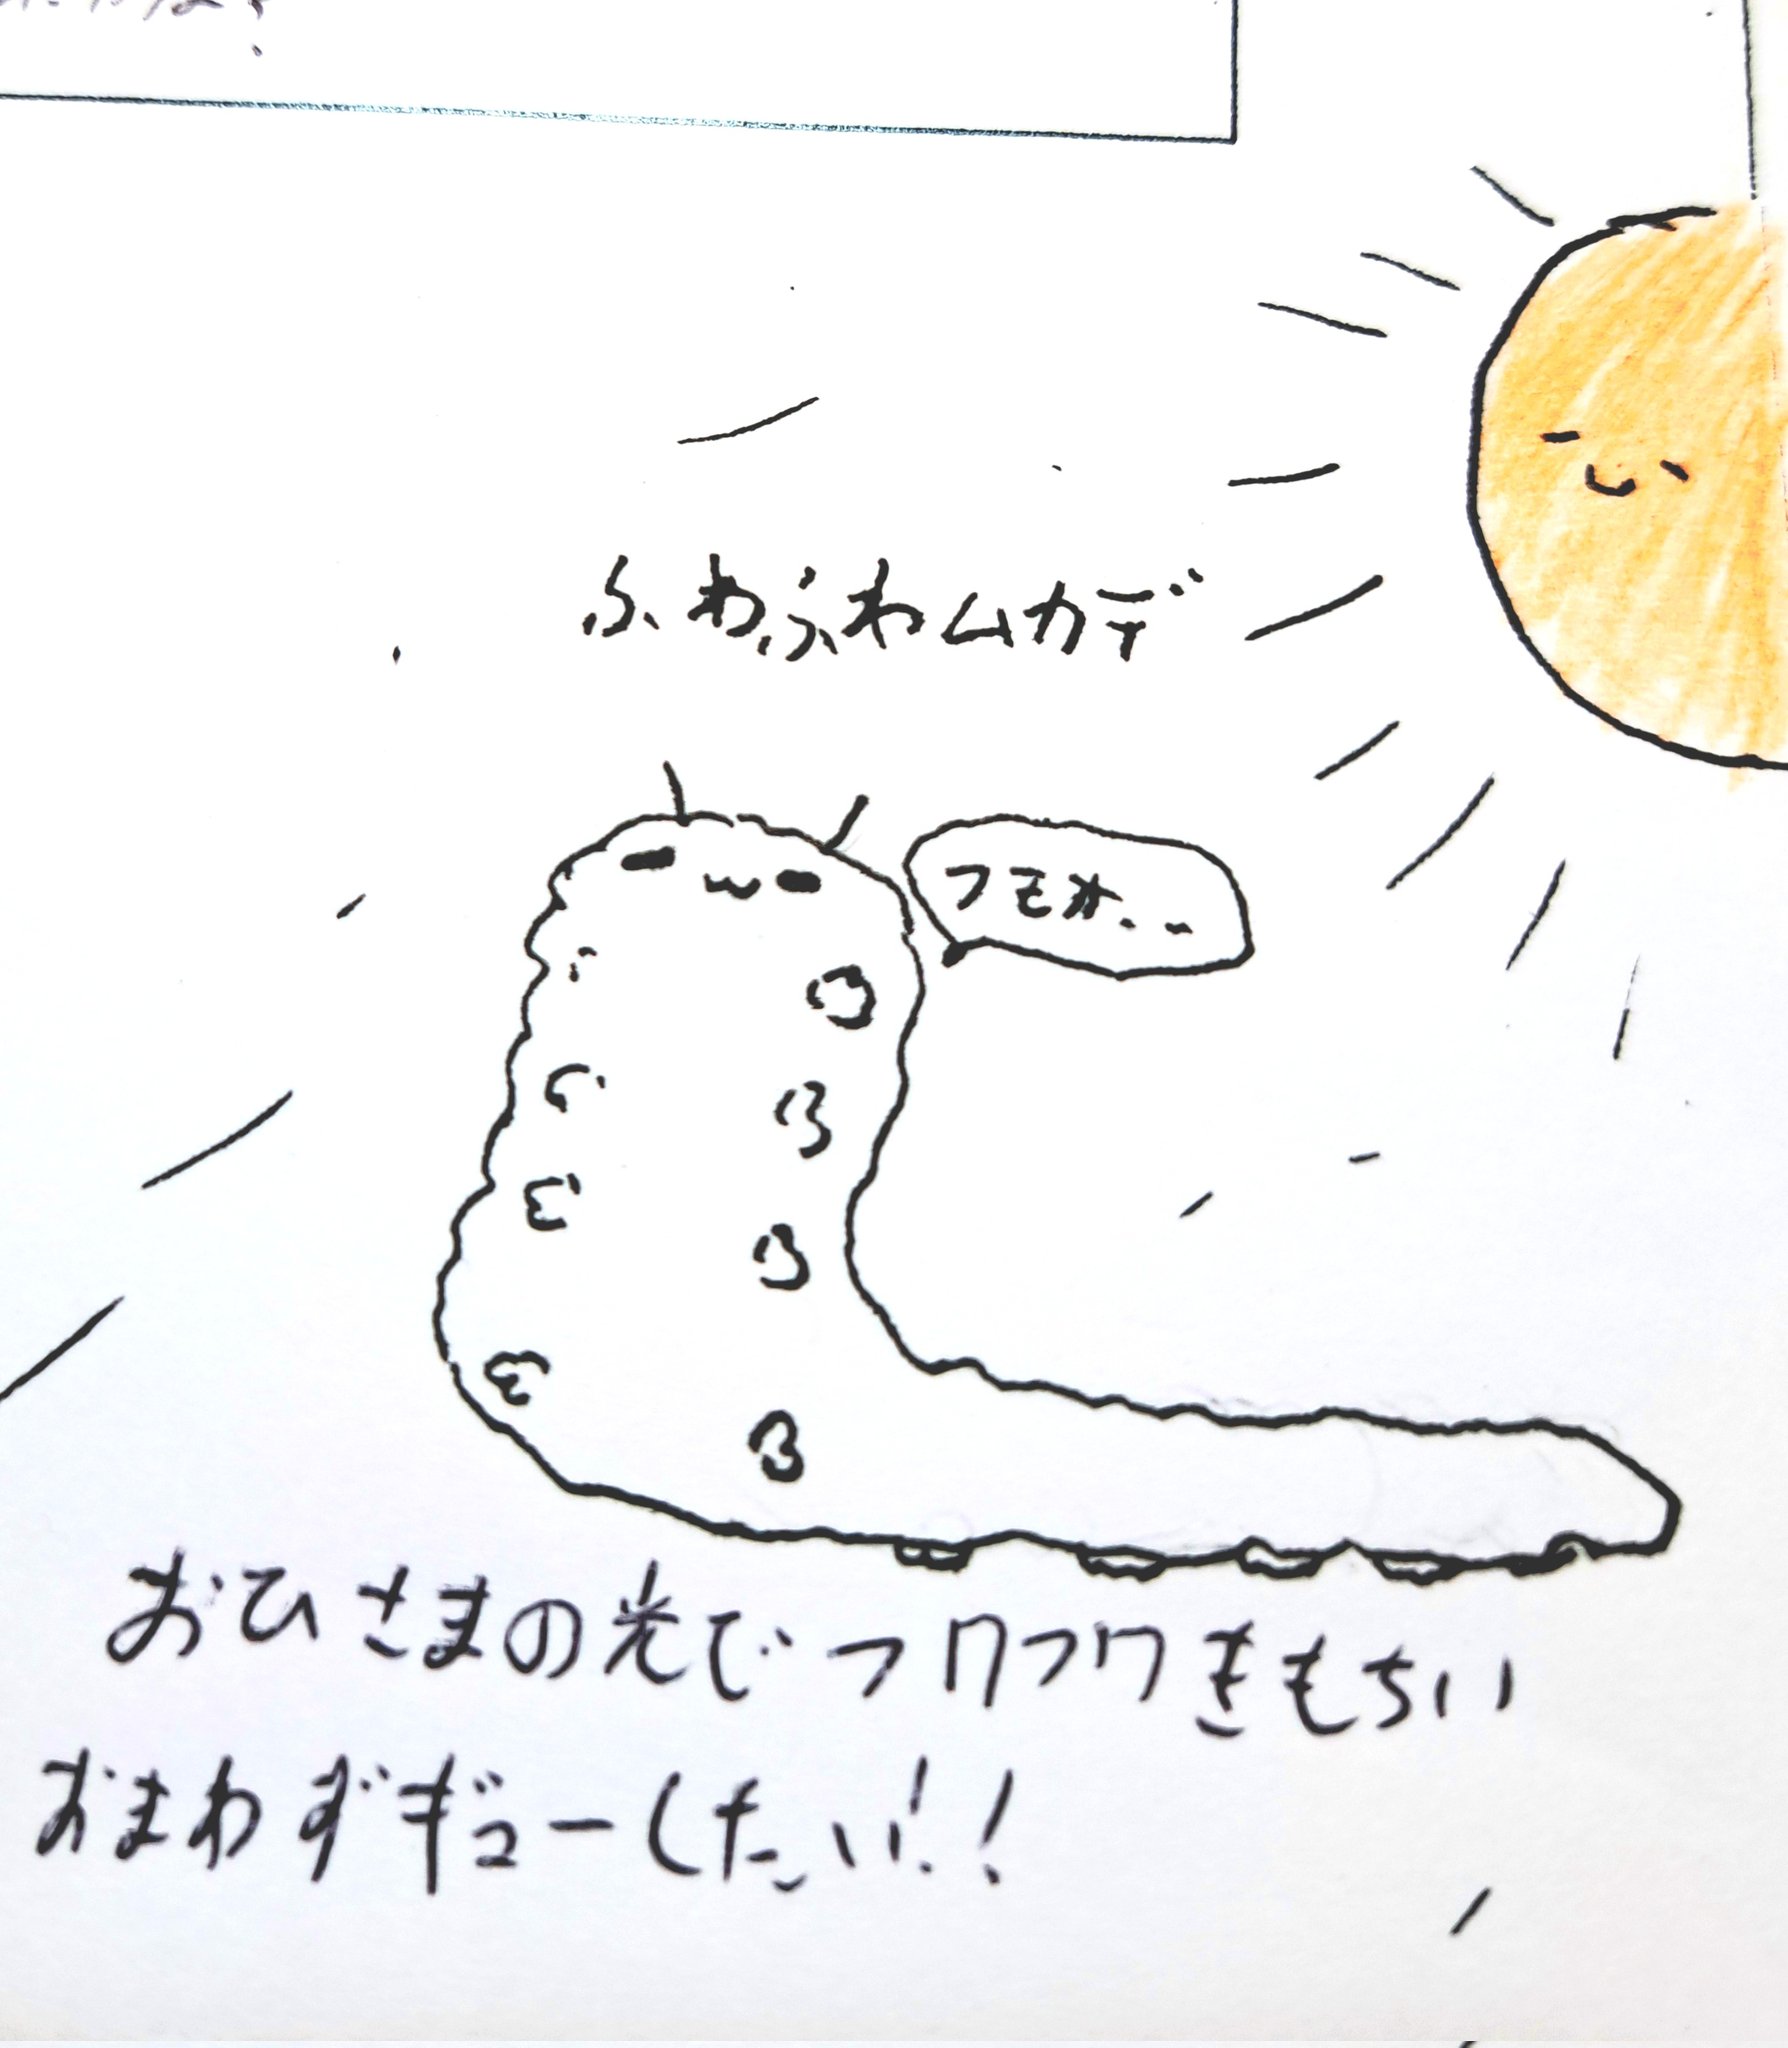 ふわふわムカデ
フモォ...
おひさまの光でフワフワきもちいい
おまわずギューしたい!!